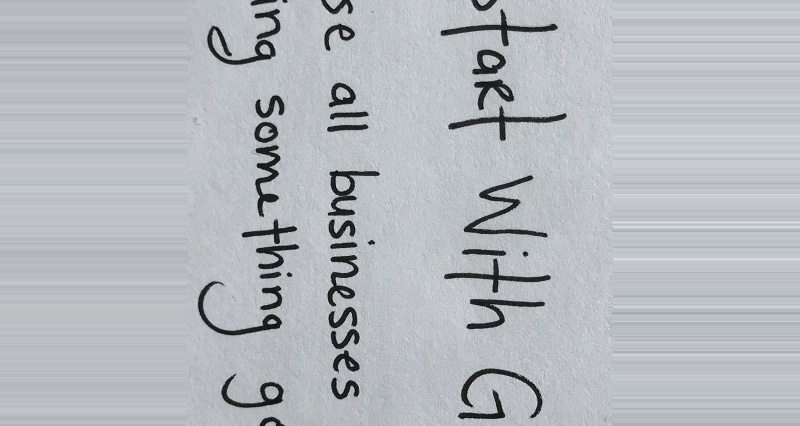 Start With G
se all businesses
ing something go